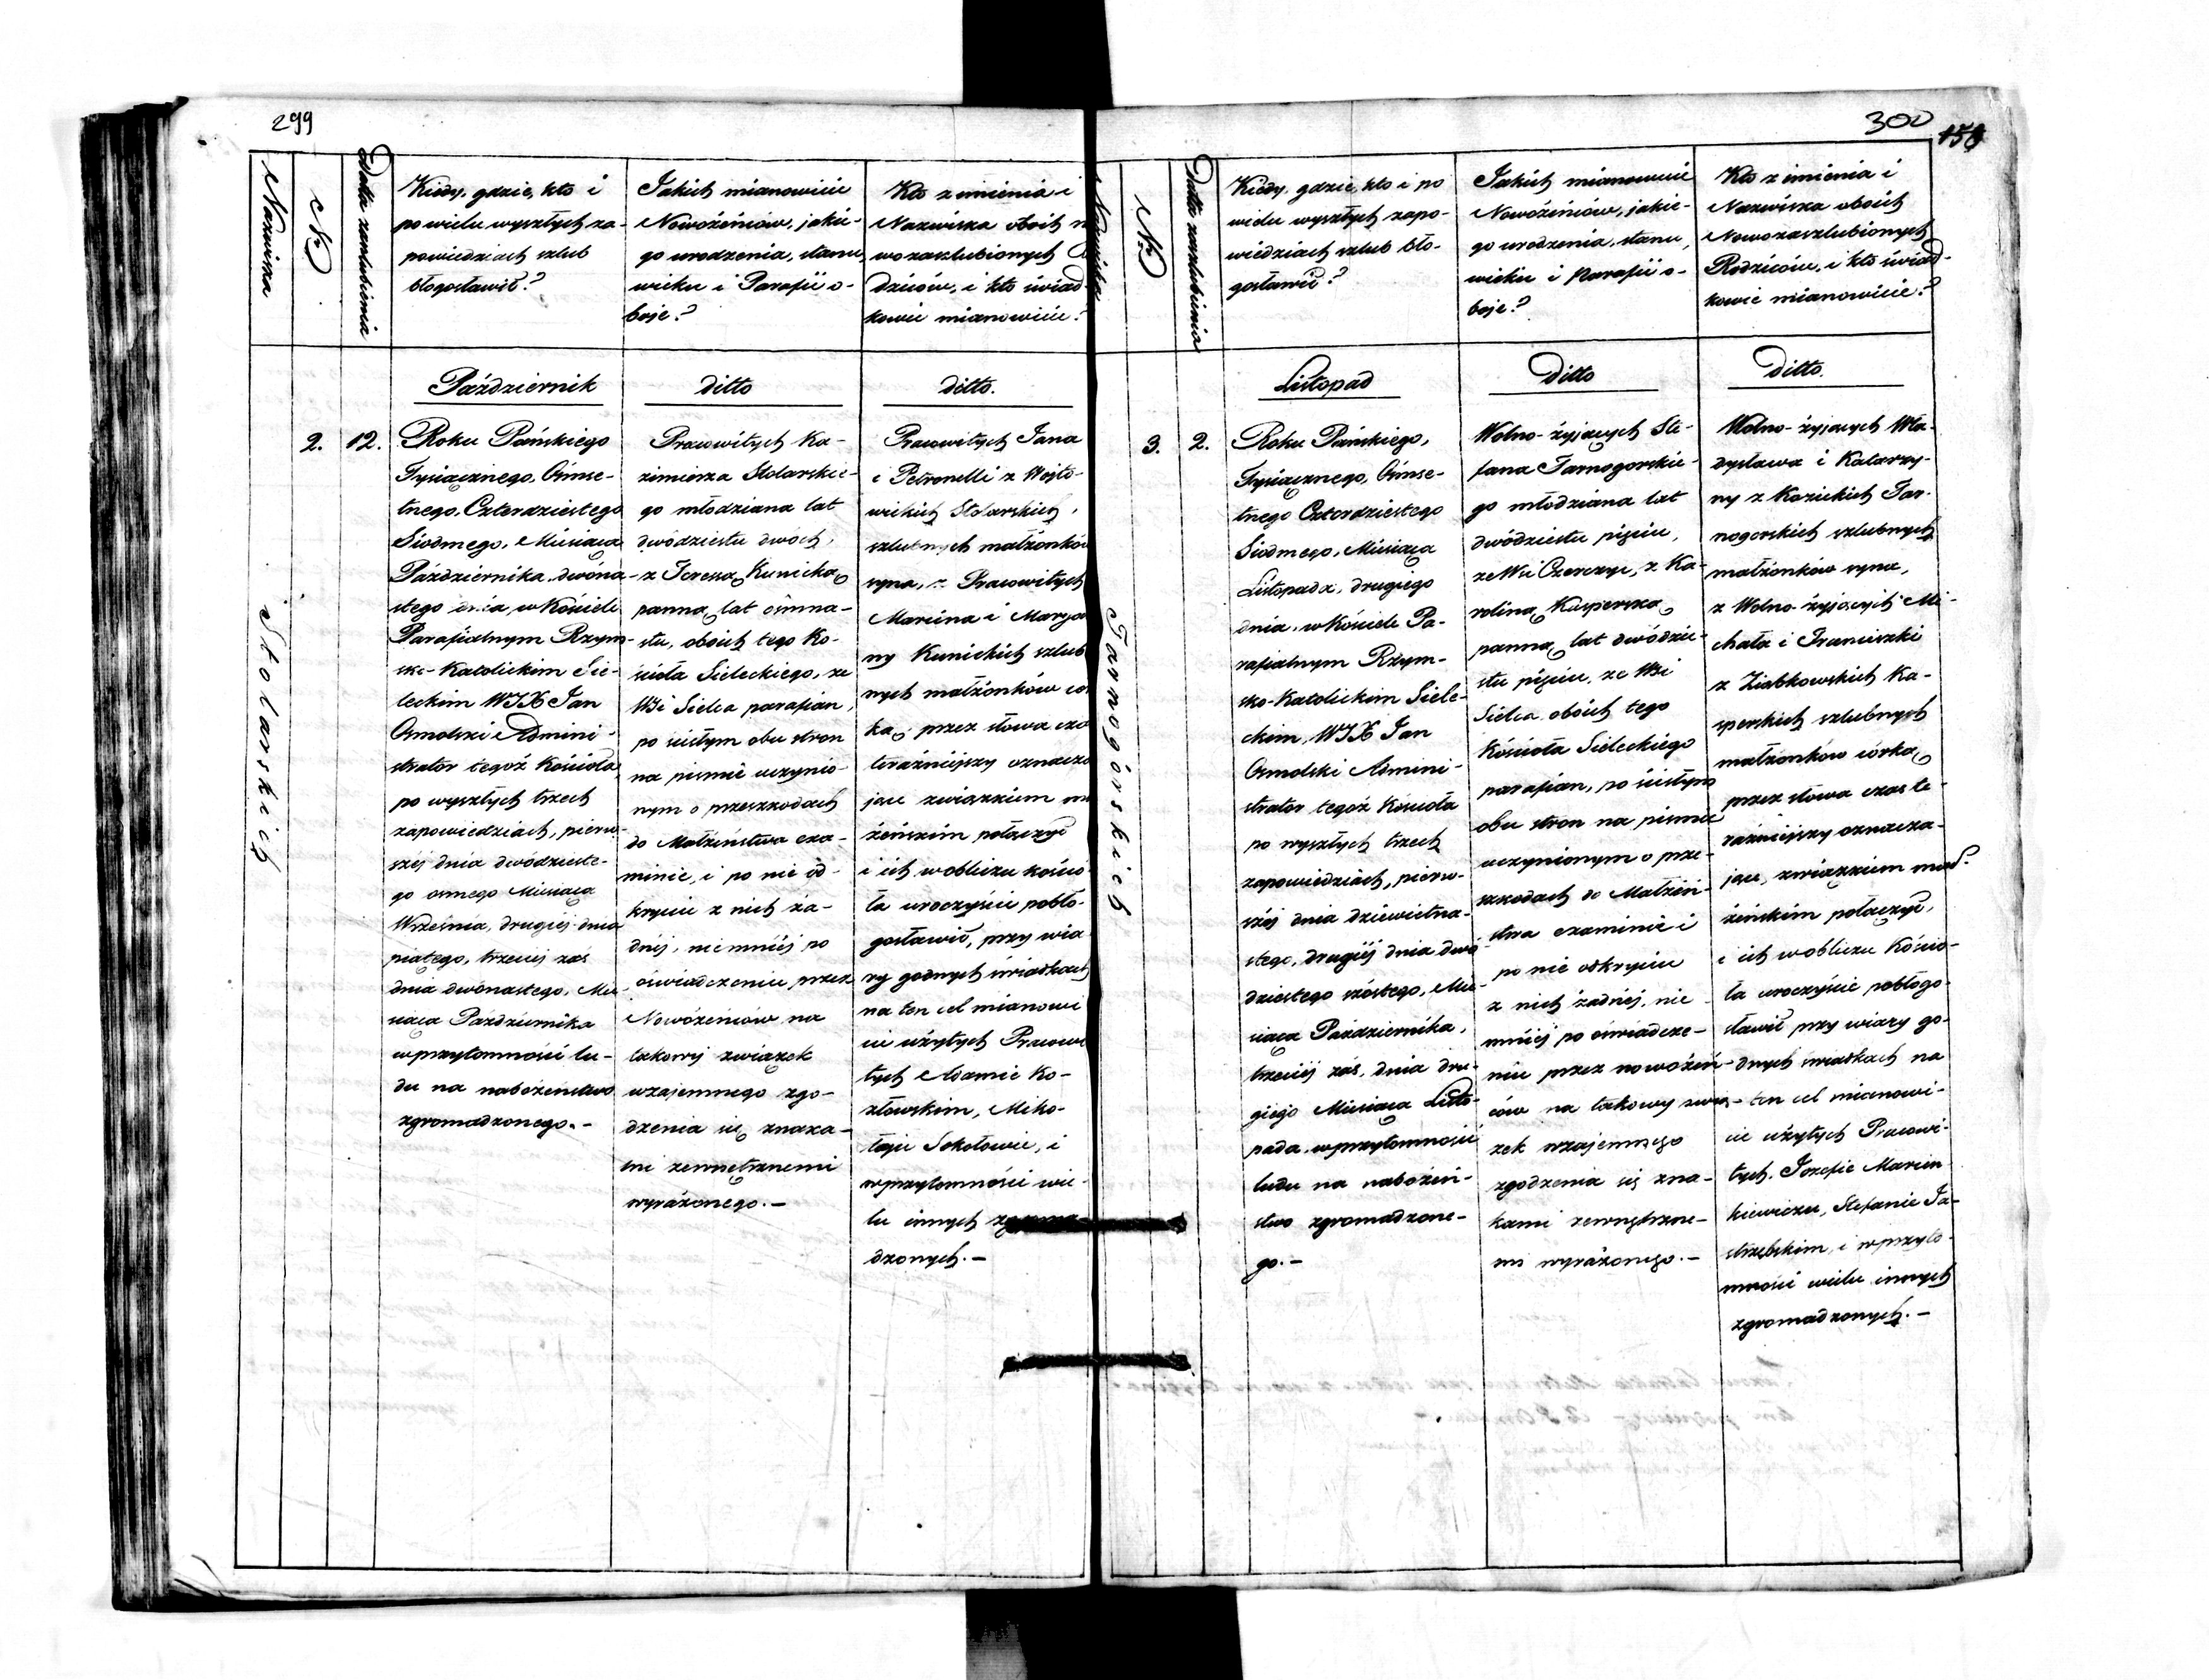 299
Nazwiska
No
Data zaszlubienia
Kiedy, gdzie, kto i
po wielu wyszłych za-
powiedziach szlub
błogosławił?
Jakich mianowicie
Nowożeńców, jakie-
go urodzenia, stanu,
wieku i Parafii o-
boje?
Kto z imienia i
Nazwiska oboich n
wozaszlubionych
dziców, i kto świad
kowie mianowicie?
Październik
ditto
ditto.
Stolarskich
2.
12.
Roku Pańskiego
Tysiącznego, Ośmse-
tnego, Czterdziestego
Siódmego, Miesiąca
Października, dwóna-
stego dnia, w Kościele
Parafialnym Rzym-
sko-Katolickim Sie-
leckim WJX Jan
Osmolski Admini-
strator tegoż Kościoła
po wyszłych trzech
zapowiedziach, pierw-
széj dnia dwódzieste-
go osmego Miesiąca
Września, drugiéj dnia
piątego, trzeciej zaś
dnia dwónastego, Mie-
siąca Października
w przytomności lu-
du na nabożeństwo
zgromadzonego.-
Pracowitych Ka-
zimierza Stolarskie-
go młodziana lat
dwódziestu dwóch,
z Teressą Kunicką
panną lat ośmna-
stu, oboich tego Ko-
ścioła Sieleckiego, ze
Wsi Sielca parafian,
po ścisłym obu stron
na piśmie uczynio-
nym o przeszkodach
do Małżeństwa exa-
minie, i po nie od-
kryciu z nich ża-
dnéj, nie mniéj po
oświadczeniu przez
Nowożeńców na
takowy związek
wzajemnego zgo-
dzenia się znaka-
mi zewnętrznemi
wyrażonego.-
Pracowitych Jana
i Petronelli z Wojto-
wickich Stolarskich,
szlubnych małżonków
syna, z Pracowitych
Marcina i Maryan
ny Kunickich szlub
nych małżonków có
ką, przez słowa cza
teraźniejszy oznacza
jące związkiem ma
żeńskim połączył
i ich w obliczu kościo
ła uroczyście pobło-
gosławił, przy wia
ry godnych świadkach
na ten cel mianowi
cie użytych Pracowi
tych Adamie Ko-
złowskim, Miko-
łaju Sokołowie, i
w przytomności wie-
lu innych zgroma-
dzonych.-
300
158
Nazwiska
No
Data zaszlubienia
Kiedy, gdzie, kto i po
wielu wyszłych zapo-
wiedziach szlub bło-
gosławił?
Jakich mianowicie
Nowożeńców, jakie-
go urodzenia, stanu,
wieku i Parafii o-
boje?
Kto z imienia i
Nazwiska oboich
Nowozaszlubionych
Rodziców, i kto świad-
kowie mianowicie?
Listopad
Ditto
Ditto.
Tarnogórskich
3.
2.
Roku Pańskiego,
Tysiącznego, Ośmse-
tnego Czterdziestego
Siódmego, Miesiąca
Listopada, drugiego
dnia, w Kościele Pa-
rafialnym Rzym-
sko-Katolickim Siele-
ckim, WJX Jan
Osmolski Admini-
strator tegoż Kościoła
po wyszłych trzech
zapowiedziach, pierw-
széj dnia dziewietna-
stego, drugiéj dnia dwó-
dziestego szóstego, Mie-
siąca Października,
trzeciéj zaś, dnia dru-
giego Miesiąca Listo-
pada, w przytomności
ludu na nabożeń-
stwo zgromadzone-
go.-
Wolno-żyjących Ste-
fana Tarnogorskie-
go młodziana lat
dwódziestu pięciu,
ze Wsi Czerczyc, z Ka-
roliną Kasperską
panną lat dwódzie-
stu pięciu, ze Wsi
Sielca oboich tego
Kościoła Sieleckiego
parafian, po ścisłym
obu stron na piśmie
uczynionym o prze-
szkodach do Małżeń-
stwa examinie i
po nie odkryciu
z nich żadnéj, nie
mniéj po oświadcze-
niu przez nowożeń-
ców na takowy zwią-
zek wzajemnego
zgodzenia się zna-
kami zewnętrzne-
mi wyrażonego.-
Wolno-żyjących Wła-
dysława i Katarzy-
ny z Kozickich Tar-
nogorskich szlubnych
małżonków syna,
z Wolno-żyjących Mi-
chała i Franciszki
z Ziabkowskich Ka-
sperskich szlubnych
małżonków córką,
przez słowa czas te-
raźniejszy oznacza-
jące, związkiem mał-
żeńskim połączył,
i ich w obliczu Kościo-
ła uroczyście pobłogo-
sławił przy wiary go-
dnych świadkach na
ten cel mianowi-
cie użytych Pracowi-
tych, Jozefie Marcin-
kiewiczu, Stefanie Ja-
strzebskim, i w przyto-
mności wielu innych
zgromadzonych.-